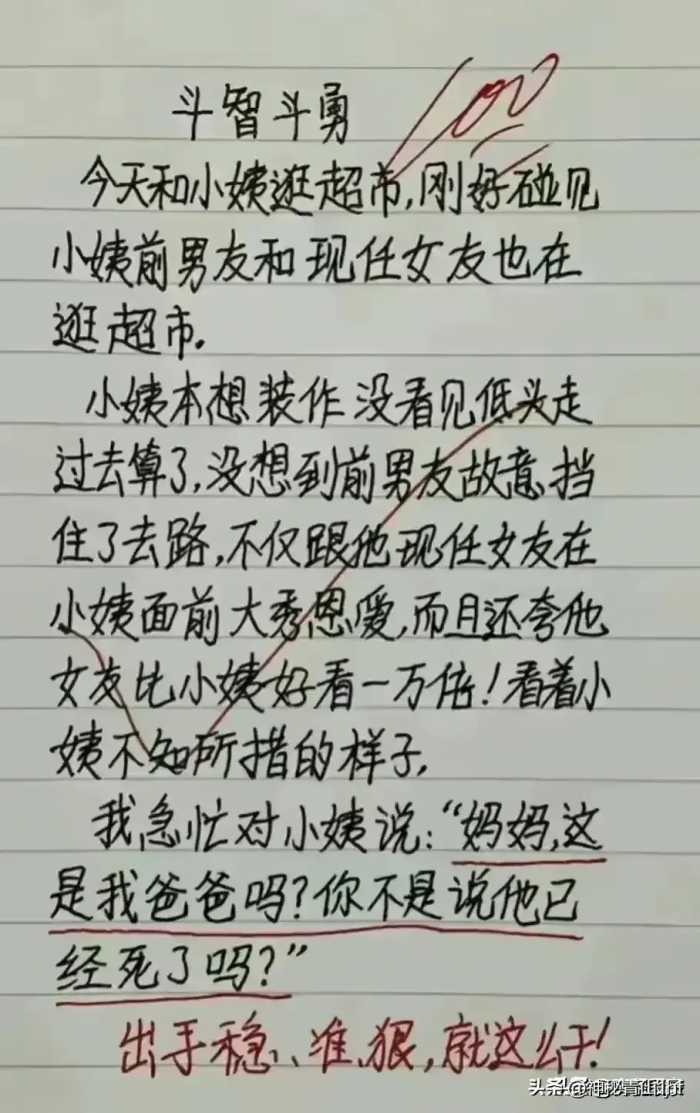 斗智斗勇
100
今天和小姨逛超市,刚好碰见
小姨前男友和现任女友也在
逛超市.
小姨本想装作没看见低头走
过去算了,没想到前男友故意挡
住了去路,不仅跟他现任女友在
小姨面前大秀恩爱,而且还夸他
女友比小姨好看一万倍!看着小
姨不知所措的样子,
我急忙对小姨说:“妈妈,这
是我爸爸吗?你不是说他已
经死了吗?”
出手稳、准、狠,就这么干!
头条